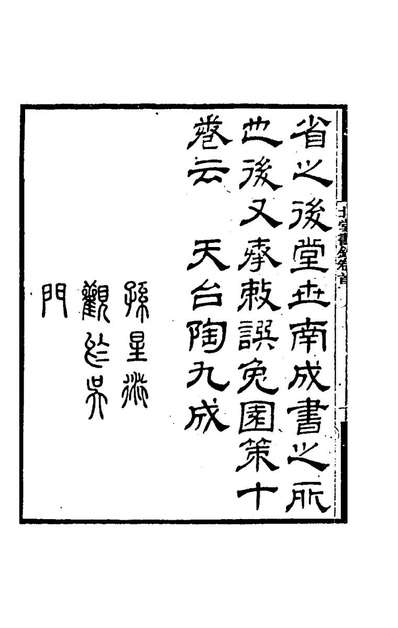 北堂書鈔卷首
省之後堂世南成書之所
也後又奉敕譔兔園策十
卷云　天台陶九成
孫星衍
觀於吳
門